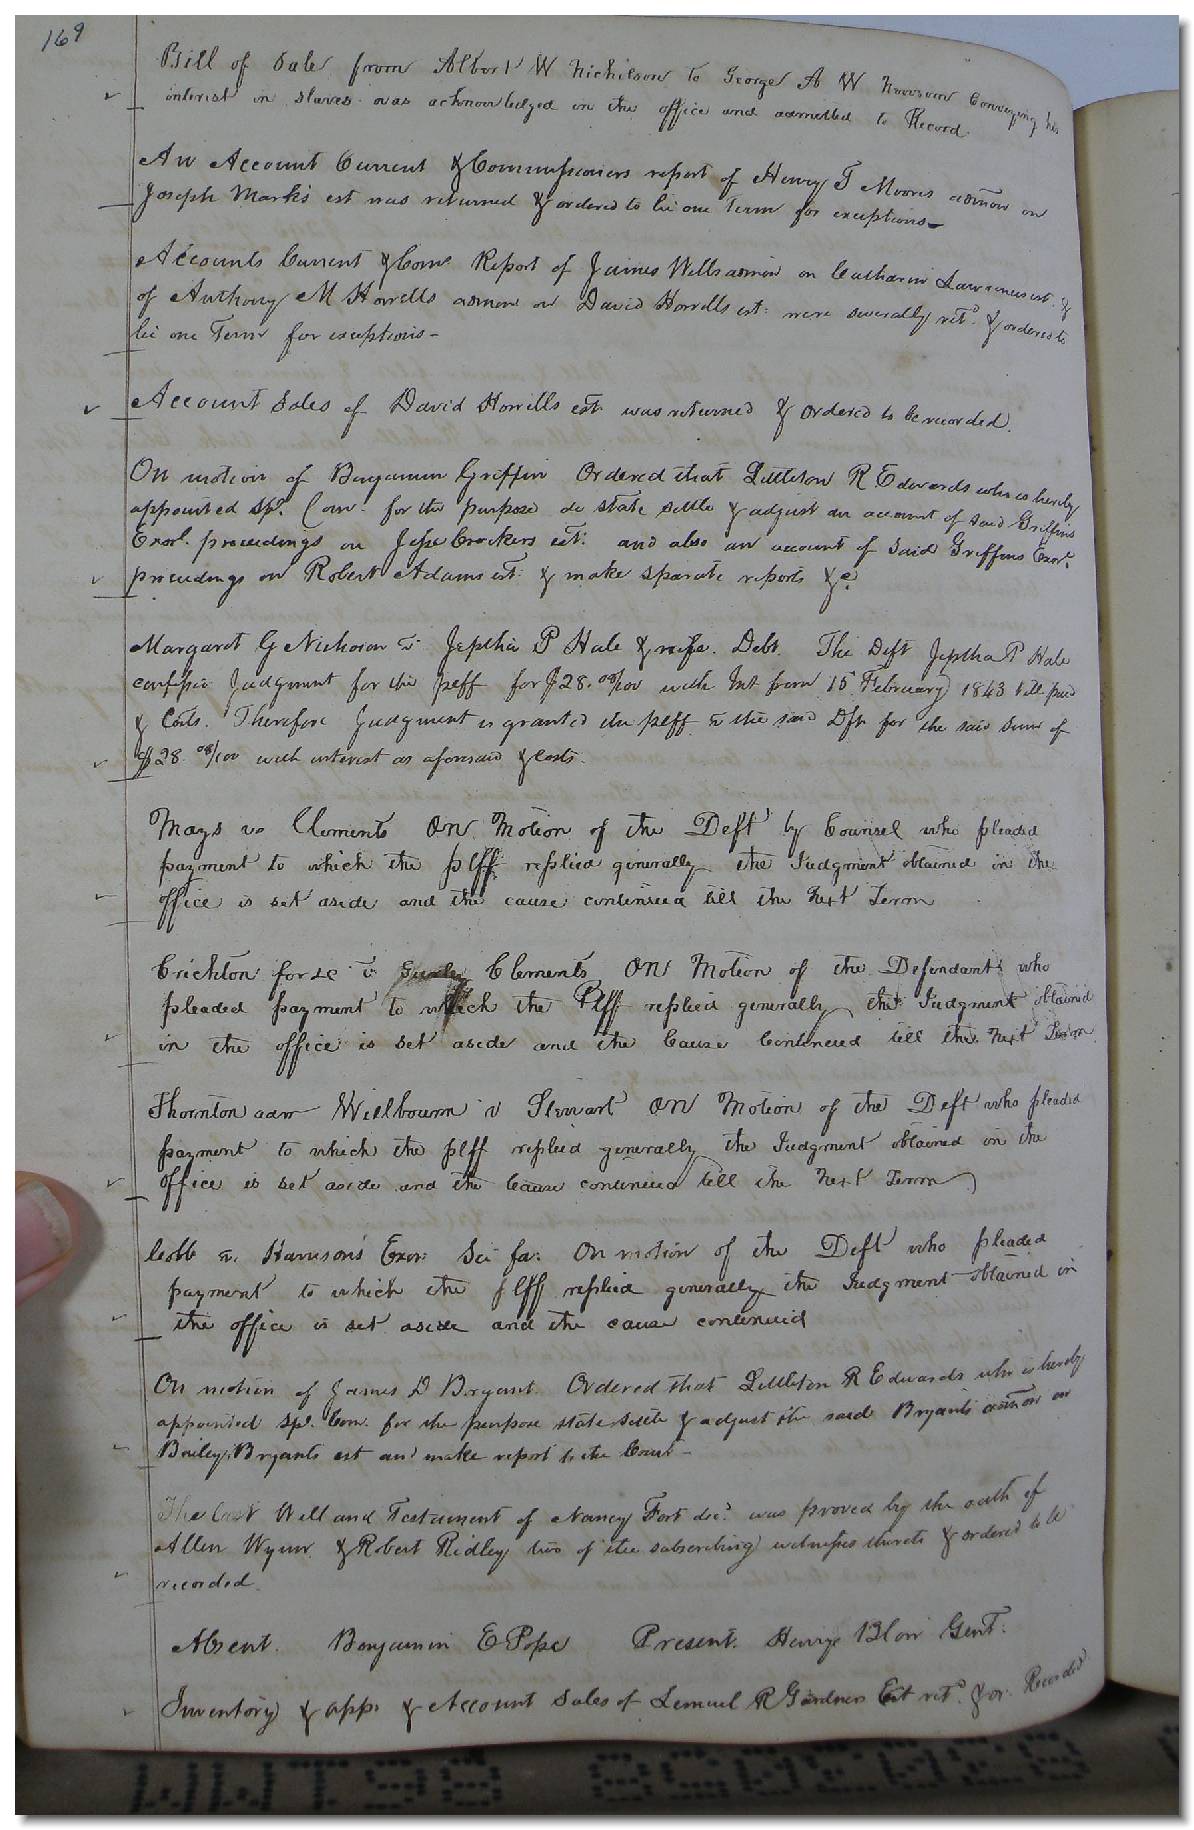 169
Bill of Sale from Albert W Nichilson to George A W Newsom Conveying his
interest in slaves was acknowledged in the office and admitted to Record
An Account Current & Commissioners report of Henry T Moores admor on
Joseph Marks est was returned & ordered to lie one Term for exceptions
Accounts Current & Comr Report of James Wells admor on Catharin Lawrences est. &
of Anthony M Howells admor on David Howells est: were severally retd. & ordered to
lie one Term for exceptions-
Account Sales of David Howells est. was returned & ordered to be recorded.
On motion of Benjamin Griffin Ordered that Littleton R Edwards who is hereby
appointed Sp. Com. for the purpose do state settle & adjust an account of said Griffins
Exorl. proceedings on Jesse Crockers est: and also an account of said Griffins Exorl.
proceedings on Robert Adams est. & make sparate reports &c.
Margaret G Nicholson v Jeptha P Hale & wife. Debt. The Deft Jeptha P Hale
confesses Judgment for the plff for $28.08/100 with Int from 15 February 1843 till paid
& Costs. Therefore Judgment is granted the plff v the said Dft for the said sum of
$28 08/100 with interest as aforesaid & Costs.
Mays vs Clements ON Motion of the Deft by Counsel who pleaded
payment to which the plff replied generally the Judgment obtained in the
office is set aside and the cause continued till the next Term
Crichton for &c v Clements ON Motion of the Defendant who
pleaded payment to which the Plff replied generally the Judgment obtained
in the office is set aside and the Cause Continued till the next Term
Thornton adm Wellbourn v Stewart ON Motion of the Deft who pleaded
payment to which the plff replied generally the Judgment obtained in the
office is set aside and the Cause continued till the next Term
Cobb v. Harrison's Exor. Sci fa: On motion of the Deft who pleaded
payment to which the plff replied generally the Judgment obtained in
the office is set aside and the cause continued
On motion of James D Bryant. Ordered that Littleton R Edwards who is hereby
appointed Sp. Com. for the purpose state settle & adjust the said Bryants admor on
Bailey Bryants est and make report to the Court-
The Last Will and Testament of Nancy Fort decd. was proved by the oath of
Allen Wynn & Robert Ridley two of the subscribing witnesses thereto & ordered to be
recorded.
Absent. Benjamin E Pope Present. Henry Blow Gent.
Inventory & app. & Account Sales of Lemuel R Gardners Est retd. & or. Recorded